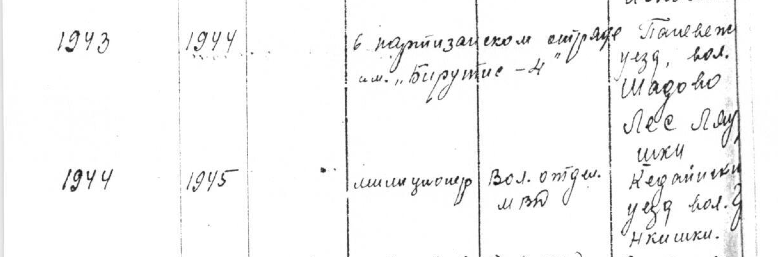 1943 1944 в партизанском отряде Паневеж
им. „Бирутис-4" уезд, вол.
Шадово
Лес Ляу
шки
1944 1945 милиционер Вол. отдел. Кедайнски
МВД уезд вол.